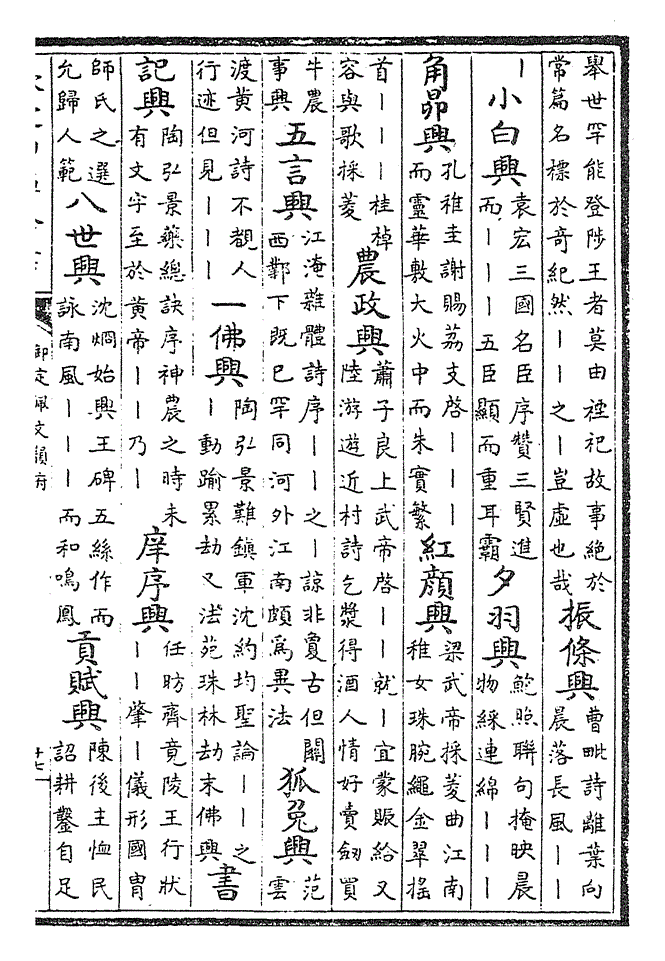 舉世罕能登陟王者莫由禋祀故事絕於
常篇名標於奇紀然丨丨之丨豈虛也哉
振條興
曹毗詩離葉向
晨落長風丨丨
丨
小白興
袁宏三國名臣序贊三賢進
而丨丨丨五臣顯而重耳霸
夕羽興
鮑照聯句掩映晨
物綵連綿丨丨丨
角昴興
孔稚圭謝賜荔支啓丨丨丨
而靈華敷大火中而朱實繁
紅顏興
梁武帝採菱曲江南
稚女珠腕繩金翠搖
首丨丨丨桂棹
容與歌採菱
農政興
蕭子良上武帝啓丨丨就丨宜蒙賑給又
陸游遊近村詩乞漿得酒人情好賣劒買
牛農
事興
五言興
江淹雜體詩序丨丨之丨諒非夐古但關
西鄴下既已罕同河外江南頗爲異法
狐兔興
范
雲
渡黃河詩不覩人
行迹但見丨丨丨
一佛興
陶弘景難鎮軍沈約均聖論丨丨之
丨動踰累劫又法苑珠林劫末佛興
書
記興
陶弘景藥總訣序神農之時未
有文字至於黃帝丨丨乃丨
庠序興
任昉齊竟陵王行狀
丨丨肇丨儀形國胄
師氏之選
允歸人範
八世興
沈烱始興王碑五絲作而
詠南風丨丨丨而和鳴鳳
貢賦興
陳後主恤民
詔耕鑿自足
御定佩文韻府
十七